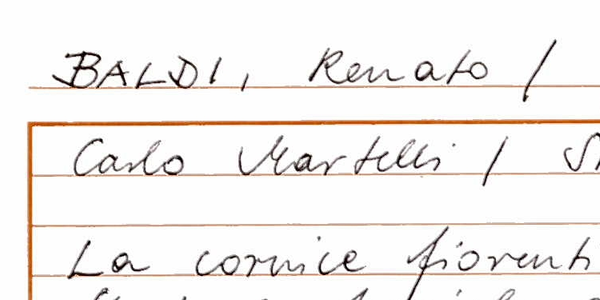 BALDI, Renato /
Carlo Martelli /
La cornice fiorenti